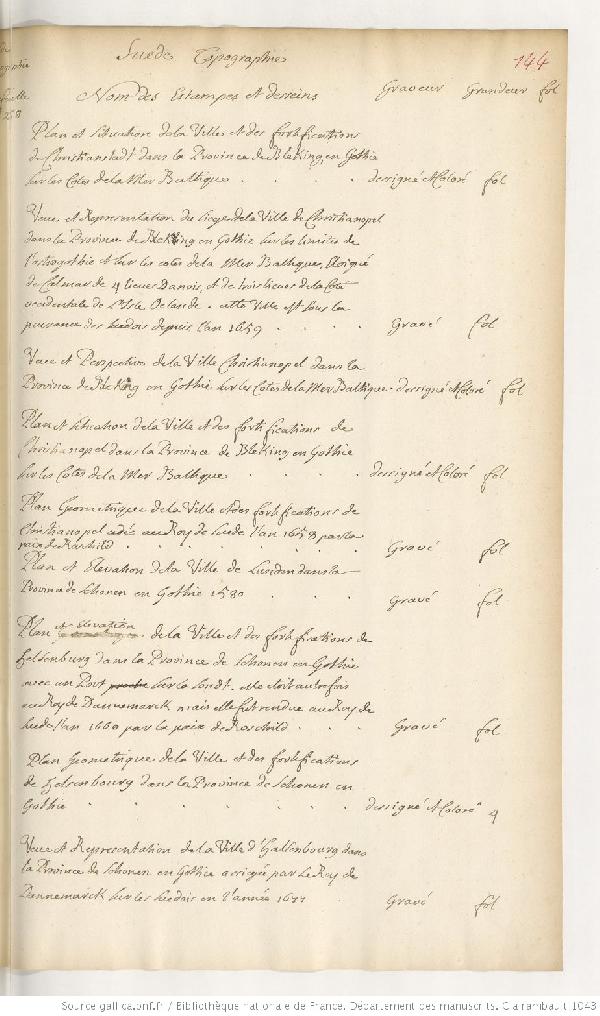 Suede Typographie 144
Nom des Estampes et desseins Graveur Grandeur fol
Plan et situation de la Ville et des fortifications
de Christianstadt dans la Province de Bleking en Gothie
sur les Cotes de la Mer Baltique . . . . dessigné et Coloré fol
Veue et Representation du siege de la Ville de Christianopel
dans la Province de Bleking en Gothie sur les limites de
et sur les cotes de la Mer Baltique, Eloigné
de Calmar de 4 lieues Danois, et de trois lieues de la Coté
occidentale de l'Isle Oelande . cette Ville est sous la
puissance des suedois depuis l'an 1659 . . . . Gravé fol
Veue et Perspective de la Ville Christianopel dans la
Province de Bleking en Gothie sur les Cotes de la Mer Baltique . dessigné et Coloré fol
Plan et situation de la Ville et des fortifications de
Christianopel dans la Province de Bleking en Gothie
sur les Cotes de la Mer Baltique . . . dessigné et Coloré fol
Plan Geometrique de la Ville et des fortifications de
Christianopel cedé au Roy de suede l'an 1658 par la
paix de Roschild . . . . . . . Gravé fol
Plan et Elevation de la Ville de Lunden dans la
Province de Schonen en Gothie 1580 . . . Gravé fol
Plan et Elevation de la Ville et des fortifications de
helsenburg dans la Province de Schonen en Gothie
avec un Port sur le Sondt. elle étoit autrefois
au Roy de Dannemarck mais elle fut rendue au Roy de
suede l'an 1660 par la paix de Roschild . . . Gravé fol
Plan Geometrique de la Ville et des fortifications
de helsenbourg dans la Province de Schonen en
Gothie . . . . . . . dessigné et Coloré 4
Veue et Representation de la Ville d'
dans
la Province de Schonen en Gothie assiegée par Le Roy de
Dannemarck sur les suedois en l'année 1677 Gravé fol
Source gallica.bnf.fr / Bibliothèque nationale de France. Département des manuscrits. Clairambault 1043